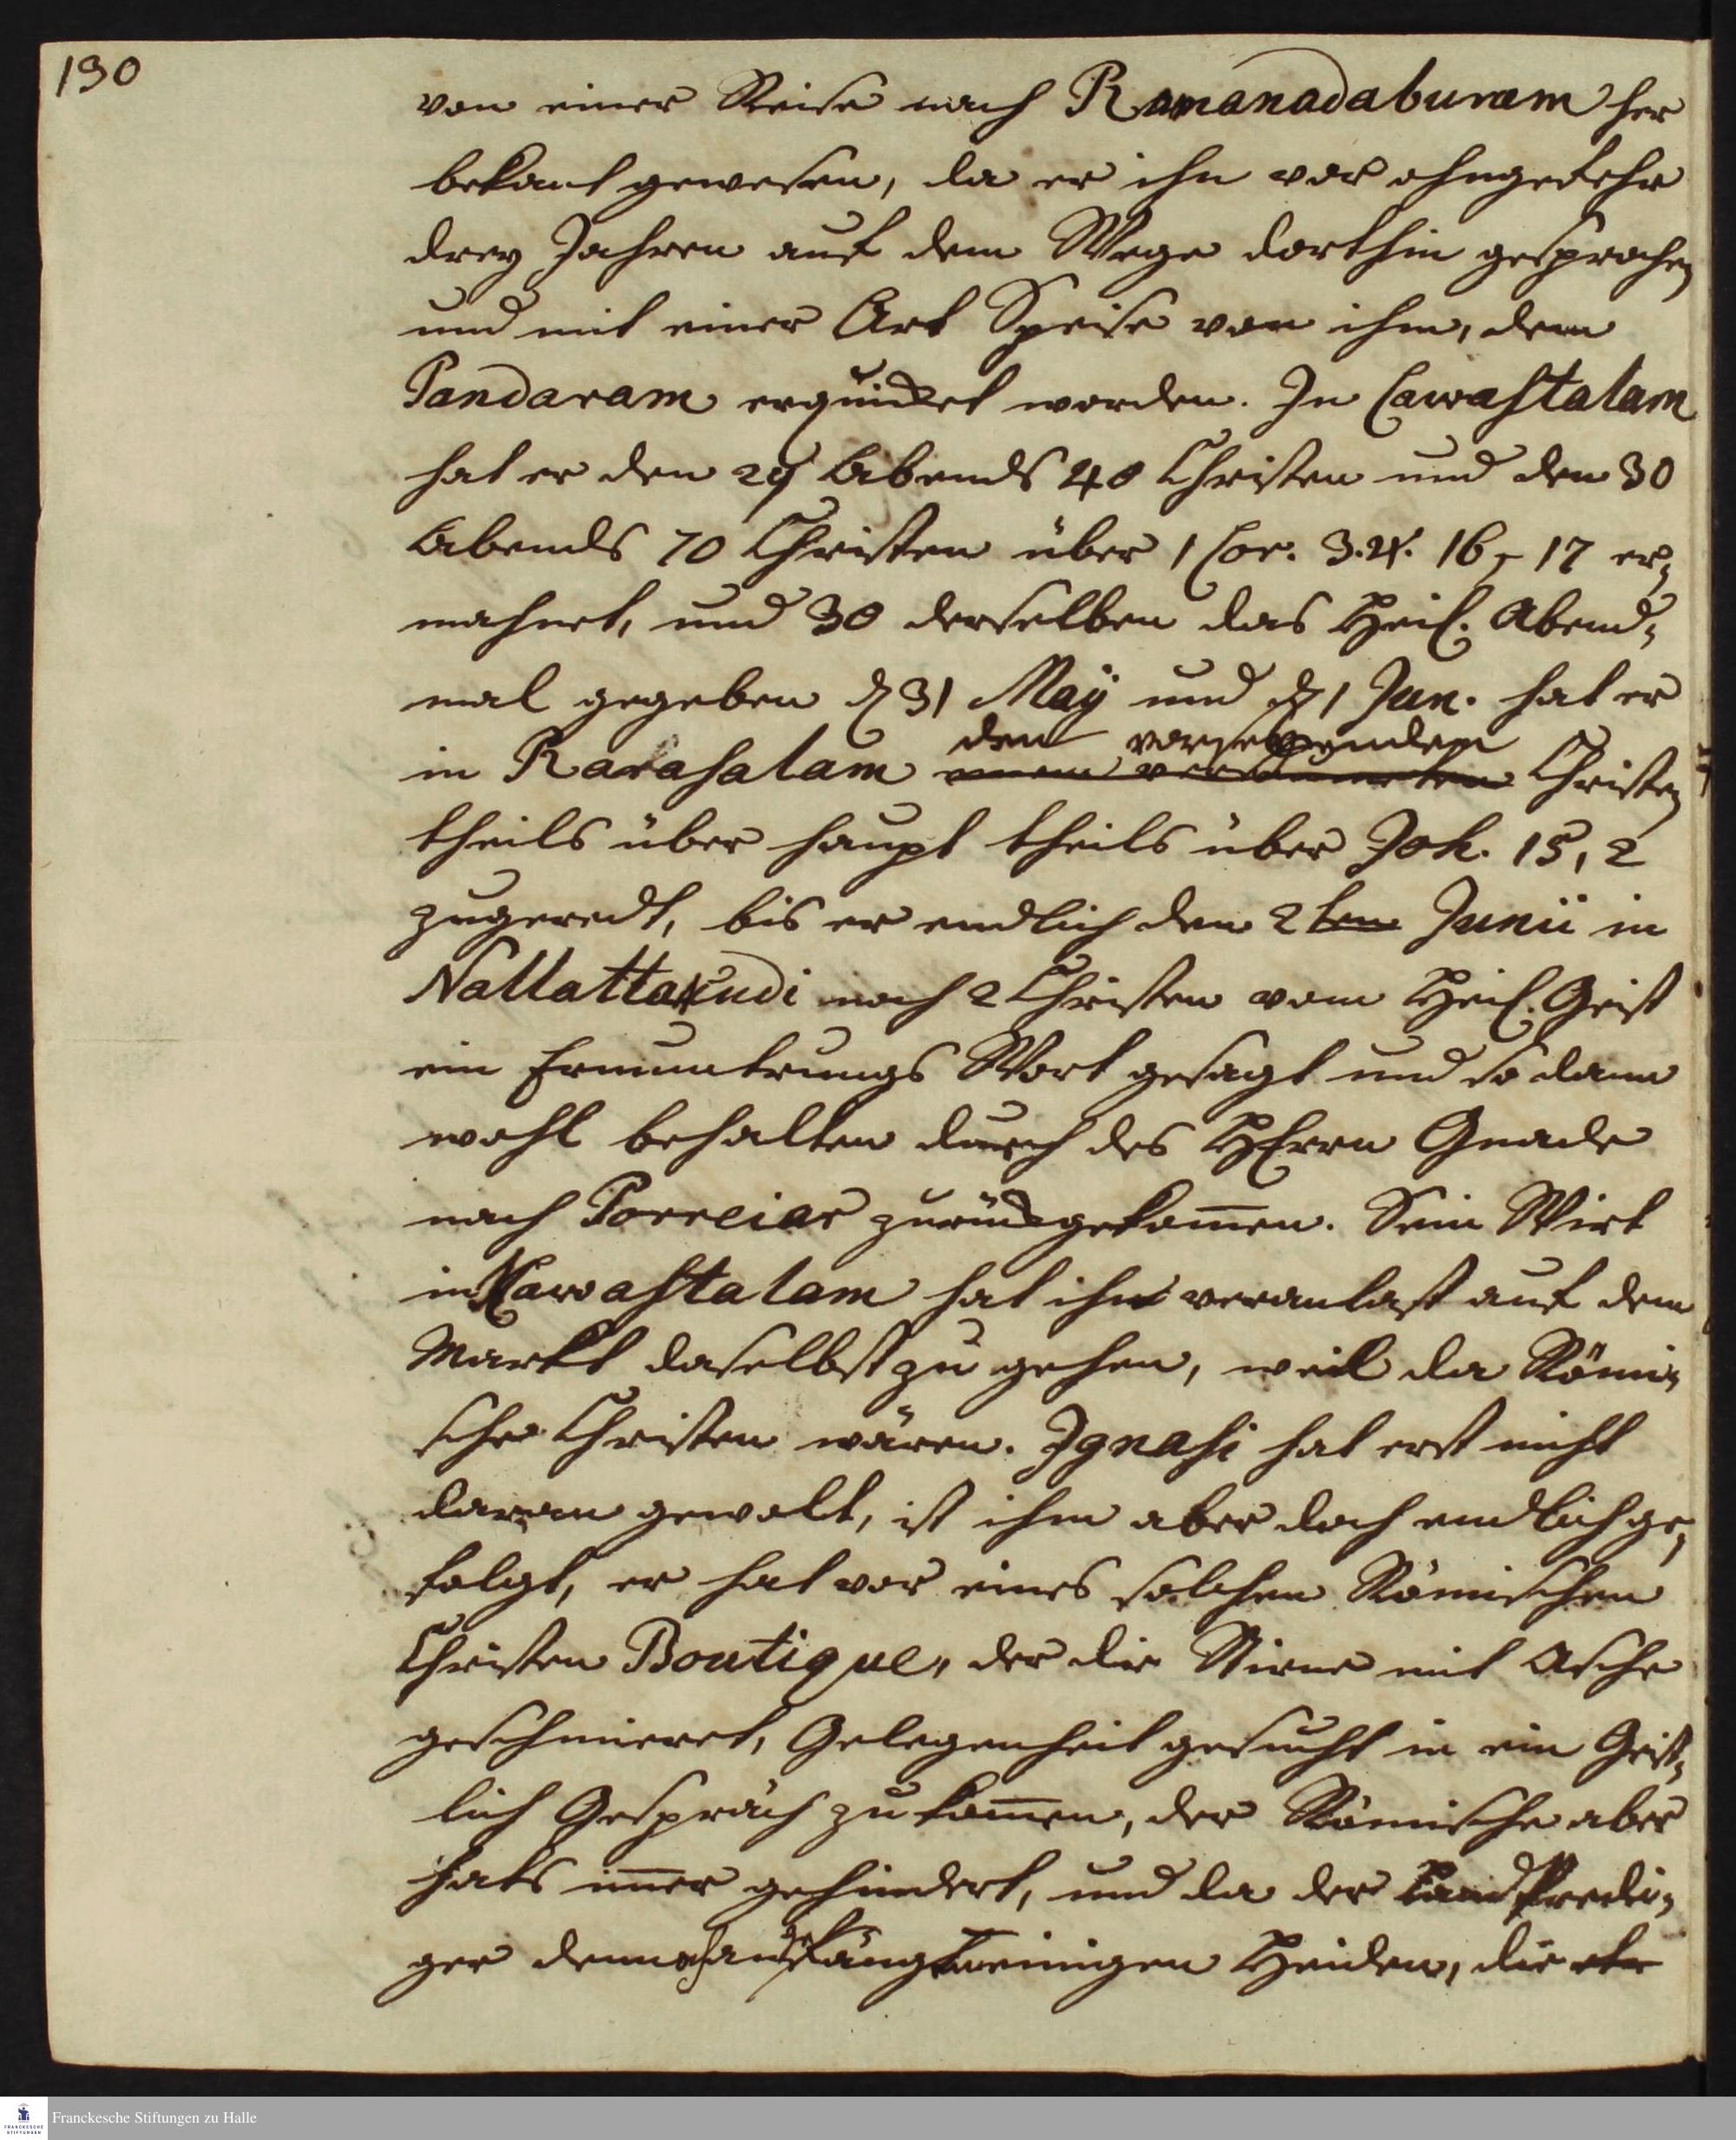 190
von einer Reise nach Ramanadaburam her
bekant gewesen, da er ihn vor ohngefehr
drey Jahren auf dem Wege dorthin gesprochen
und mit einer Art Speise von ihm, dem
Pandaram erquicket worden. In Cawastalam
hat er den 29 Abends 40 Christen und den 30
Abends 70 Christen über 1 Cor. 3. V. 16, 17 er-
mahnet, und 30 derselben das Heil. Abend-
mal gegeben d 31 May und d 1 Jun. hat er
den
in Rarasalam Christen
theils über haupt theils über Joh. 15, 2
zugeredt, bis er endlich den 2ten Junii in
Nallattakudi noch 2 Christen vom Heil. Geist
ein Ermuntrungs Wort gesagt und so dann
wohl behalten durch des HErrn Gnade
nach Porreiar zurückgekommen. Sein Wirt
in Kawastalam hat ihn veranlast auf dem
Markt daselbst zu gehen, weil da Römi-
sche Christen wären. Ignasi hat erst nicht
daran gewolt, ist ihm aber doch endlich ge-
folgt, er hat vor eines solchen Römischen
Christen Boutique, der die Stirne mit Asche
geschmieret, Gelegenheit gesucht in ein Geist-
lich Gespräch zu kommen, der Römische aber
hats immer gehindert, und da der Land Predi-
ger einigen Heiden, die
Franckesche Stiftungen zu Halle